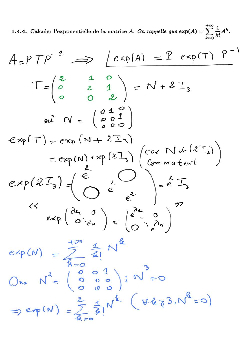 1.4.4. Calculer l'exponentielle de la matrice A. On rappelle que exp(A) = \sum_{k=0}^{+∞} \frac{1}{k!} A^k.
A = P T P^{-1} ⟹ exp(A) = P exp(T) P^{-1}
T = \begin{pmatrix} 2 & 1 & 0 \\ 0 & 2 & 1 \\ 0 & 0 & 2 \end{pmatrix} = N + 2 I_3
où N = \begin{pmatrix} 0 & 1 & 0 \\ 0 & 0 & 1 \\ 0 & 0 & 0 \end{pmatrix}
exp(T) = exp(N + 2I_3)
= exp(N) × exp(2I_3) (car N & (2I_3) commutent)
exp(2I_3) = \begin{pmatrix} e^2 & & O \\ & e^2 & \\ O & & e^2 \end{pmatrix} = e^2 I_3
« exp \begin{pmatrix} λ_1 & O \\ O & λ_n \end{pmatrix} = \begin{pmatrix} e^{λ_1} & O \\ O & e^{λ_n} \end{pmatrix} »
exp(N) = \sum_{k=0}^{+∞} \frac{1}{k!} N^k
Or N^2 = \begin{pmatrix} 0 & 0 & 1 \\ 0 & 0 & 0 \\ 0 & 0 & 0 \end{pmatrix} ; N^3 = 0
⇒ exp(N) = \sum_{k=0}^{2} \frac{1}{k!} N^k. (∀k≥3, N^k = 0)